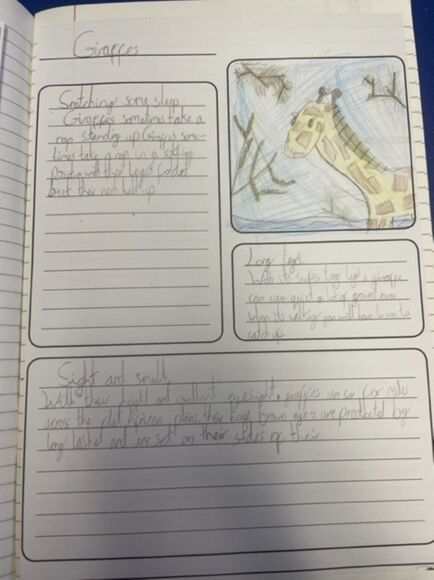 Giraffes
Snatching some sleep
Giraffes sometimes take a
nap standing up Giraffes some-
times take a nap in a sitting
position with their legs
but their neck held up.
Long legs
With its super long legs a giraffe
can quite a lot of ground even
when its walking you will have to run to
catch up.
Sight and smell
With their height and eyesight, giraffes can see for miles
across the flat African plains, their huge brown eyes are protected by
long lashes and are set on their sides of their